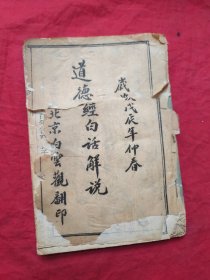 歲次戊辰年仲春
道德經白話解說
北京白雲觀翻印